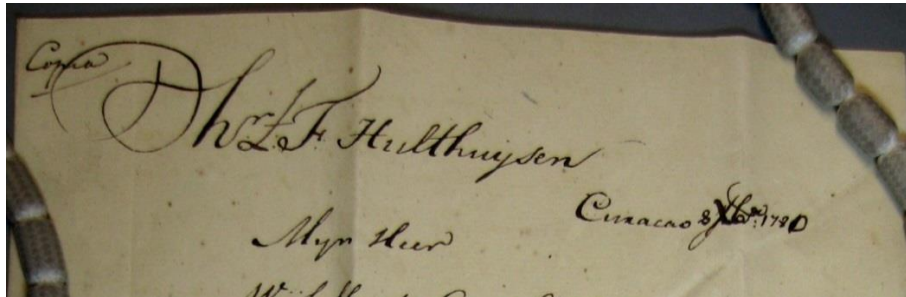 Copia
Dhr. L. F. Hulthuysen
Curacao 8 Xbr. 1780
Myn Heer